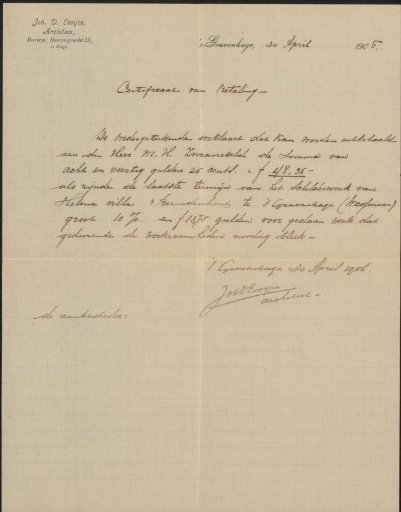 Joh. D. Looijen,
Architect,
Bureau: Heerengracht 13,
Den Haag.
's Gravenhage, 20 April 1906.
Certificaat van Betaling
De ondergeteekende verklaart dat kan worden uitbetaald
aan den Heer M. H. de Somma van
acht en veertig gulden 25 cents. = f 48.25
als zijnde de laatste termijn van het Schilderwerk van
Helena villa te 's Gravenhage
groot 10 % en f 13,75 gulden voor gedaan werk dat
gedurende de werkzaamheden noodig bleek
's Gravenhage 20 April 1906.
Joh D Looijen
architect
de aanbesteder: